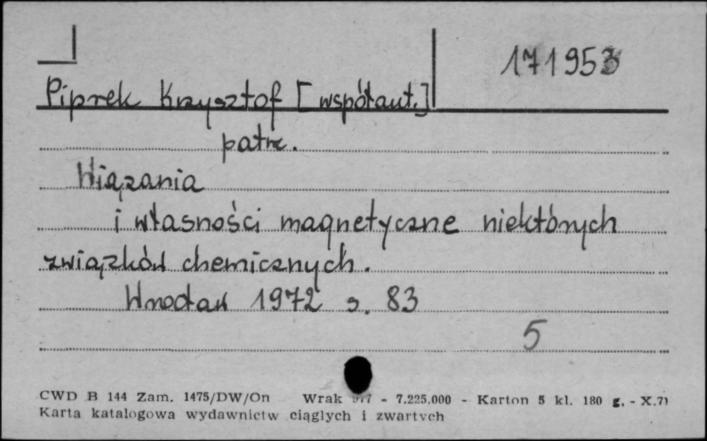 171953
Piprek Krzysztof [współaut.]
patrz.
Wiązania
i własności magnetyczne niektórych
związków chemicznych.
Wrocław 1972 s. 83
5
CWD B 144 Zam. 1475/DW/On Wrak - 7.225.000 - Karton 5 kl. 180 g. - X.71
Karta katalogowa wydawnictw ciągłych i zwartych